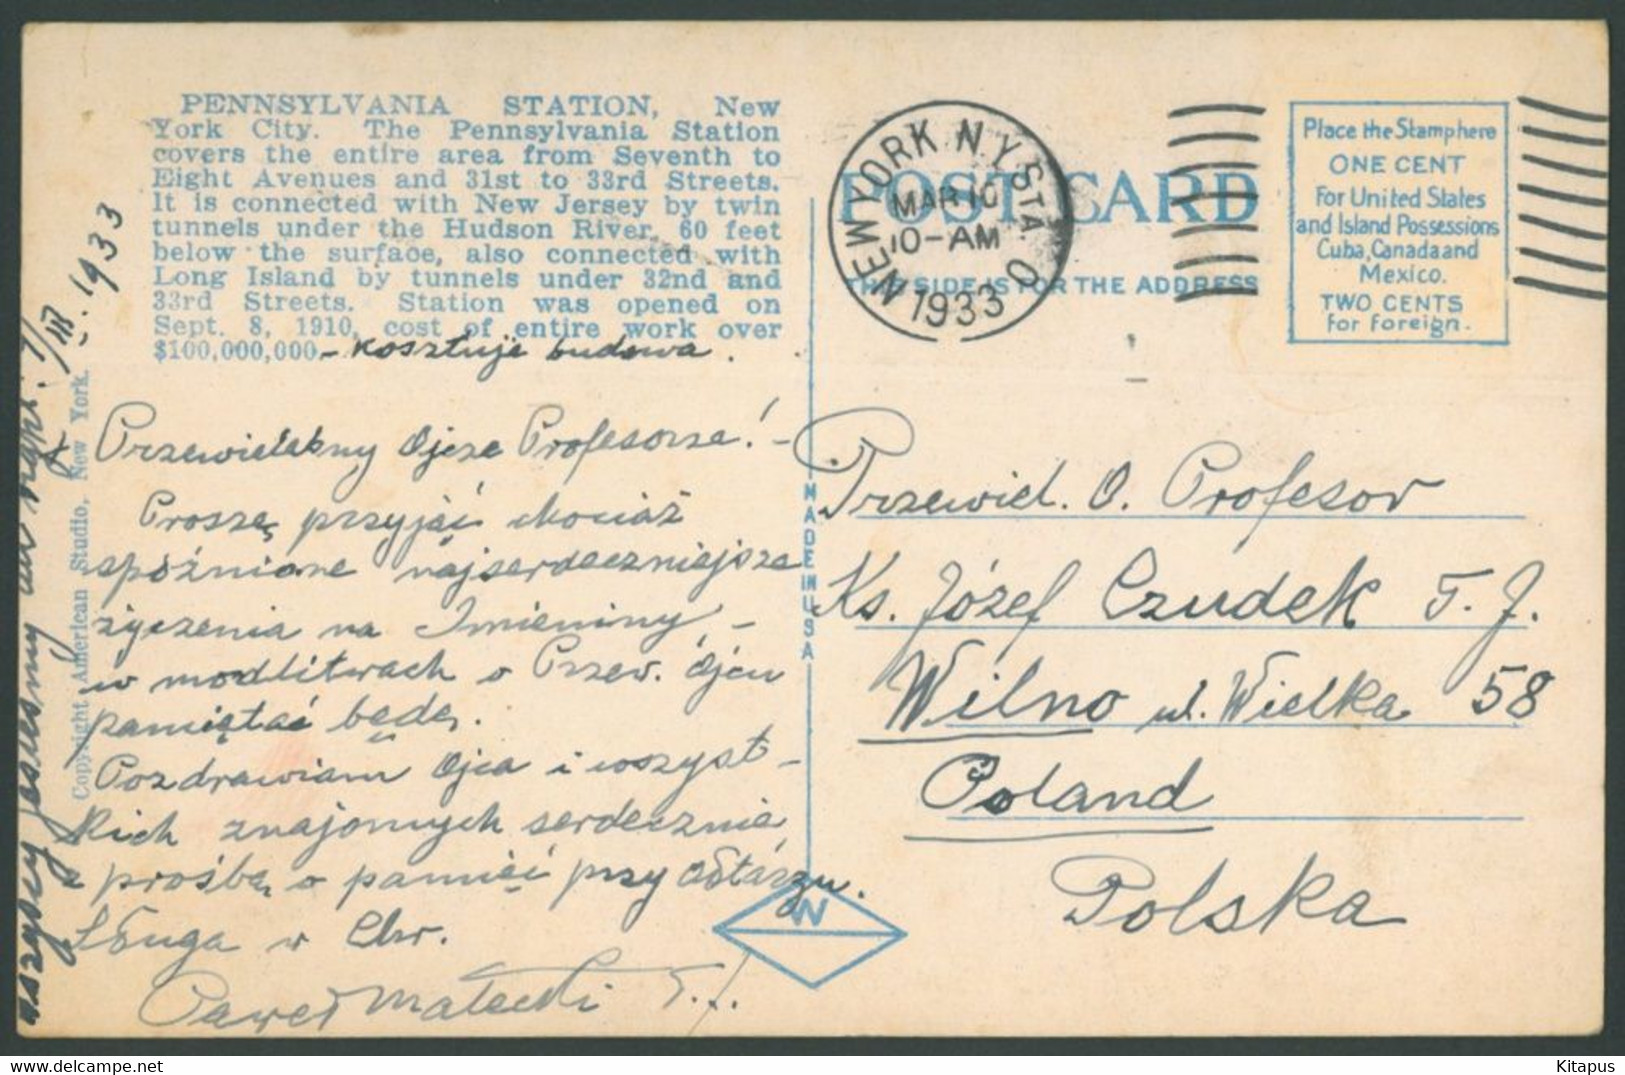 PENNSYLVANIA STATION, New
York City. The Pennsylvania Station
covers the entire area from Seventh to
Eight Avenues and 31st to 33rd Streets.
It is connected with New Jersey by twin
tunnels under the Hudson River, 60 feet
below the surface, also connected with
Long Island by tunnels under 32nd and
33rd Streets. Station was opened on
Sept. 8, 1910, cost of entire work over
$100,000,000 - kosztuje budowa.
Przewielebny Ojcze Profesorze! -
Proszę przyjąć chociaż
spóźnione najserdeczniejsze
życzenia na Imieniny -
w modlitwach o Przew. Ojcu
pamiętać będę.
Pozdrawiam Ojca i wszyst-
kich znajomych serdecznie
z prośbą o pamięć przy Ołtarzu.
Sługa w Chr.
Paweł Małecki T.J.
wszyscy jesteśmy 1933
Copyright American Studio, New York.
MADE IN USA
N
POST CARD
THIS SIDE IS FOR THE ADDRESS
NEW YORK, N.Y. STA. O
MAR 10
10-AM
1933
Place the Stamp here
ONE CENT
For United States
and Island Possessions
Cuba, Canada and
Mexico.
TWO CENTS
for foreign.
Przewiel. O. Profesor
Ks. Józef Czudek T. J.
Wilno ul. Wielka 58
Poland
Polska
Kitapus